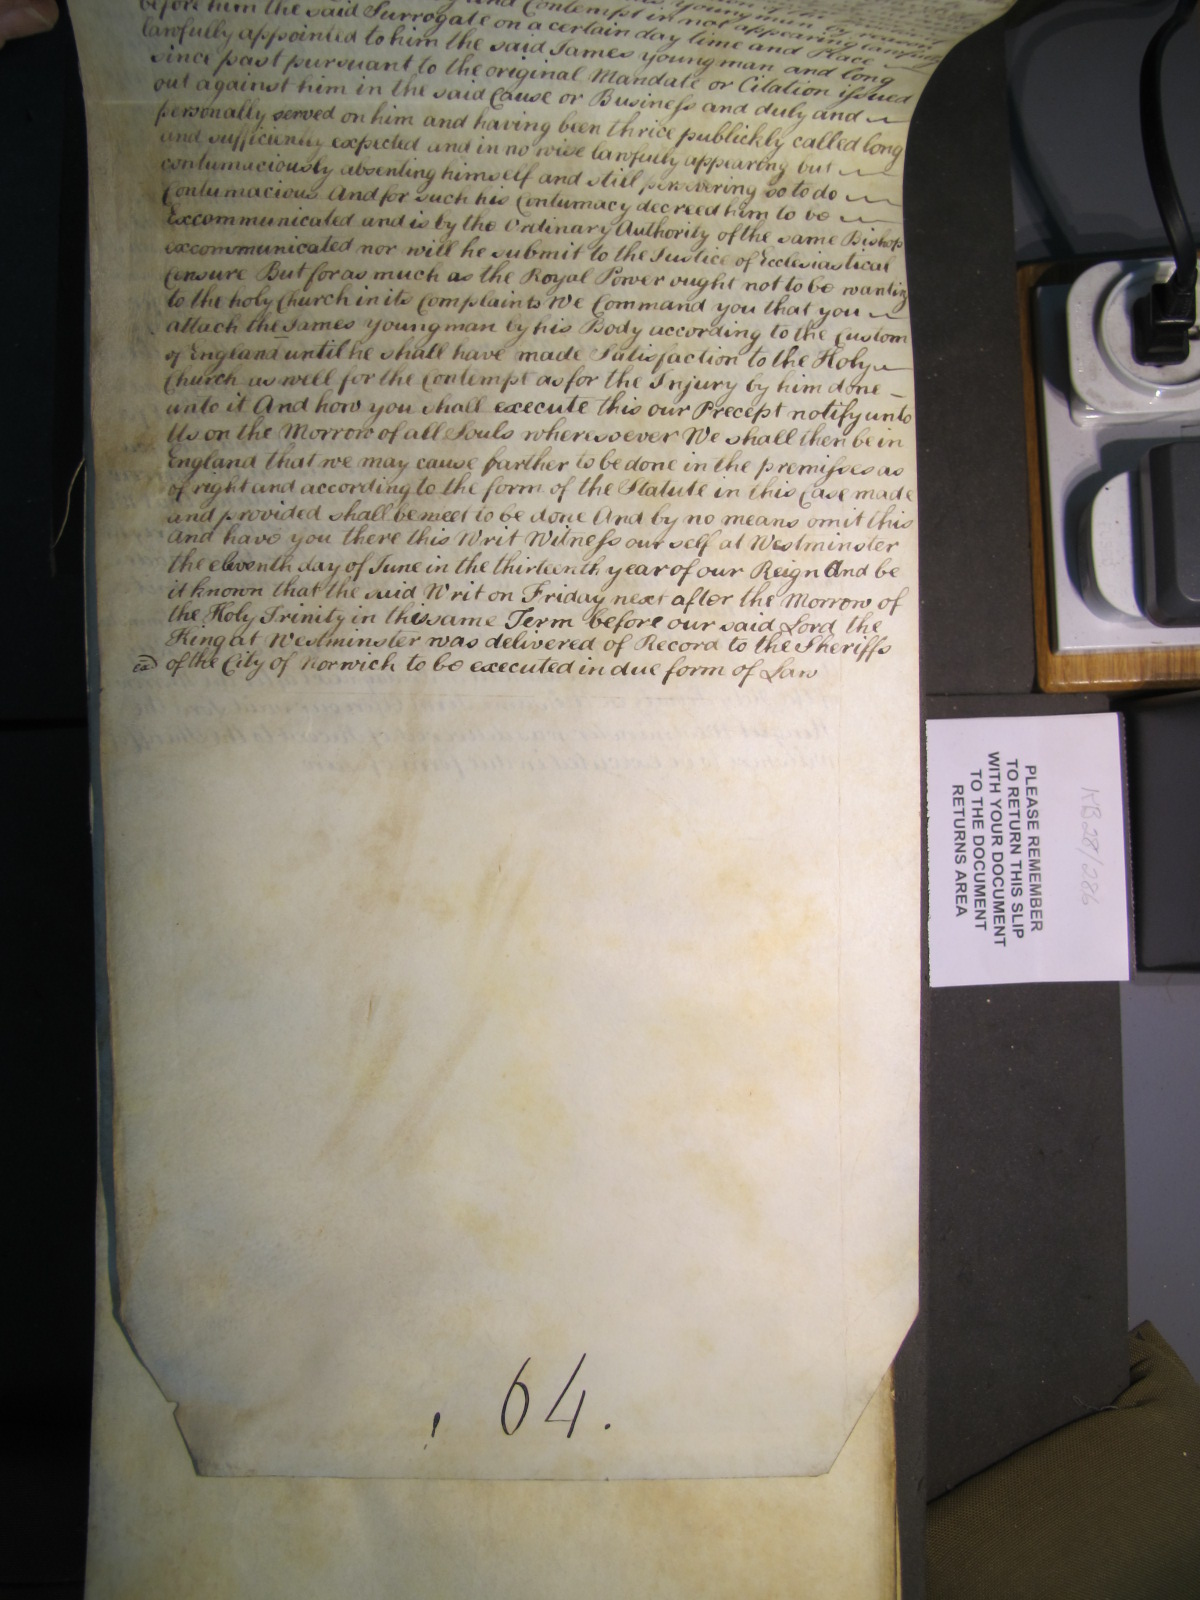 and Contempt in not appearing lawfully
before him the said Surrogate on a certain day time and Place
lawfully appointed to him the said James Youngman and long
since past pursuant to the original Mandate or Citation issued
out against him in the said Cause or Business and duly and
personally served on him and having been thrice publickly called long
and sufficiently expected and in no wise lawfully appearing but
contumaciously absenting himself and still persevering so to do
Contumacious And for such his Contumacy decreed him to be
Excommunicated and is by the Ordinary Authority of the same Bishop
excommunicated nor will he submit to the Justice of Ecclesiastical
Censure But for as much as the Royal Power ought not to be wanting
to the holy Church in its Complaints We Command you that you
attach the James Youngman by his Body according to the Custom
of England until he shall have made Satisfaction to the Holy
Church as well for the Contempt as for the Injury by him done
unto it And how you shall execute this our Precept notify unto
Us on the Morrow of all Souls wheresoever We shall then be in
England that we may cause farther to be done in the premisses as
of right and according to the form of the Statute in this Case made
and provided shall be meet to be done And by no means omit this
and have you there this Writ Witness ourself at Westminster
the eleventh day of June in the thirteenth year of our Reign And be
it known that the said Writ on Friday next after the Morrow of
the Holy Trinity in this same Term before our said Lord the
King at Westminster was delivered of Record to the Sheriffs
of the City of Norwich to be executed in due form of Law
64.
KB28/286
PLEASE REMEMBER
TO RETURN THIS SLIP
WITH YOUR DOCUMENT
TO THE DOCUMENT
RETURNS AREA